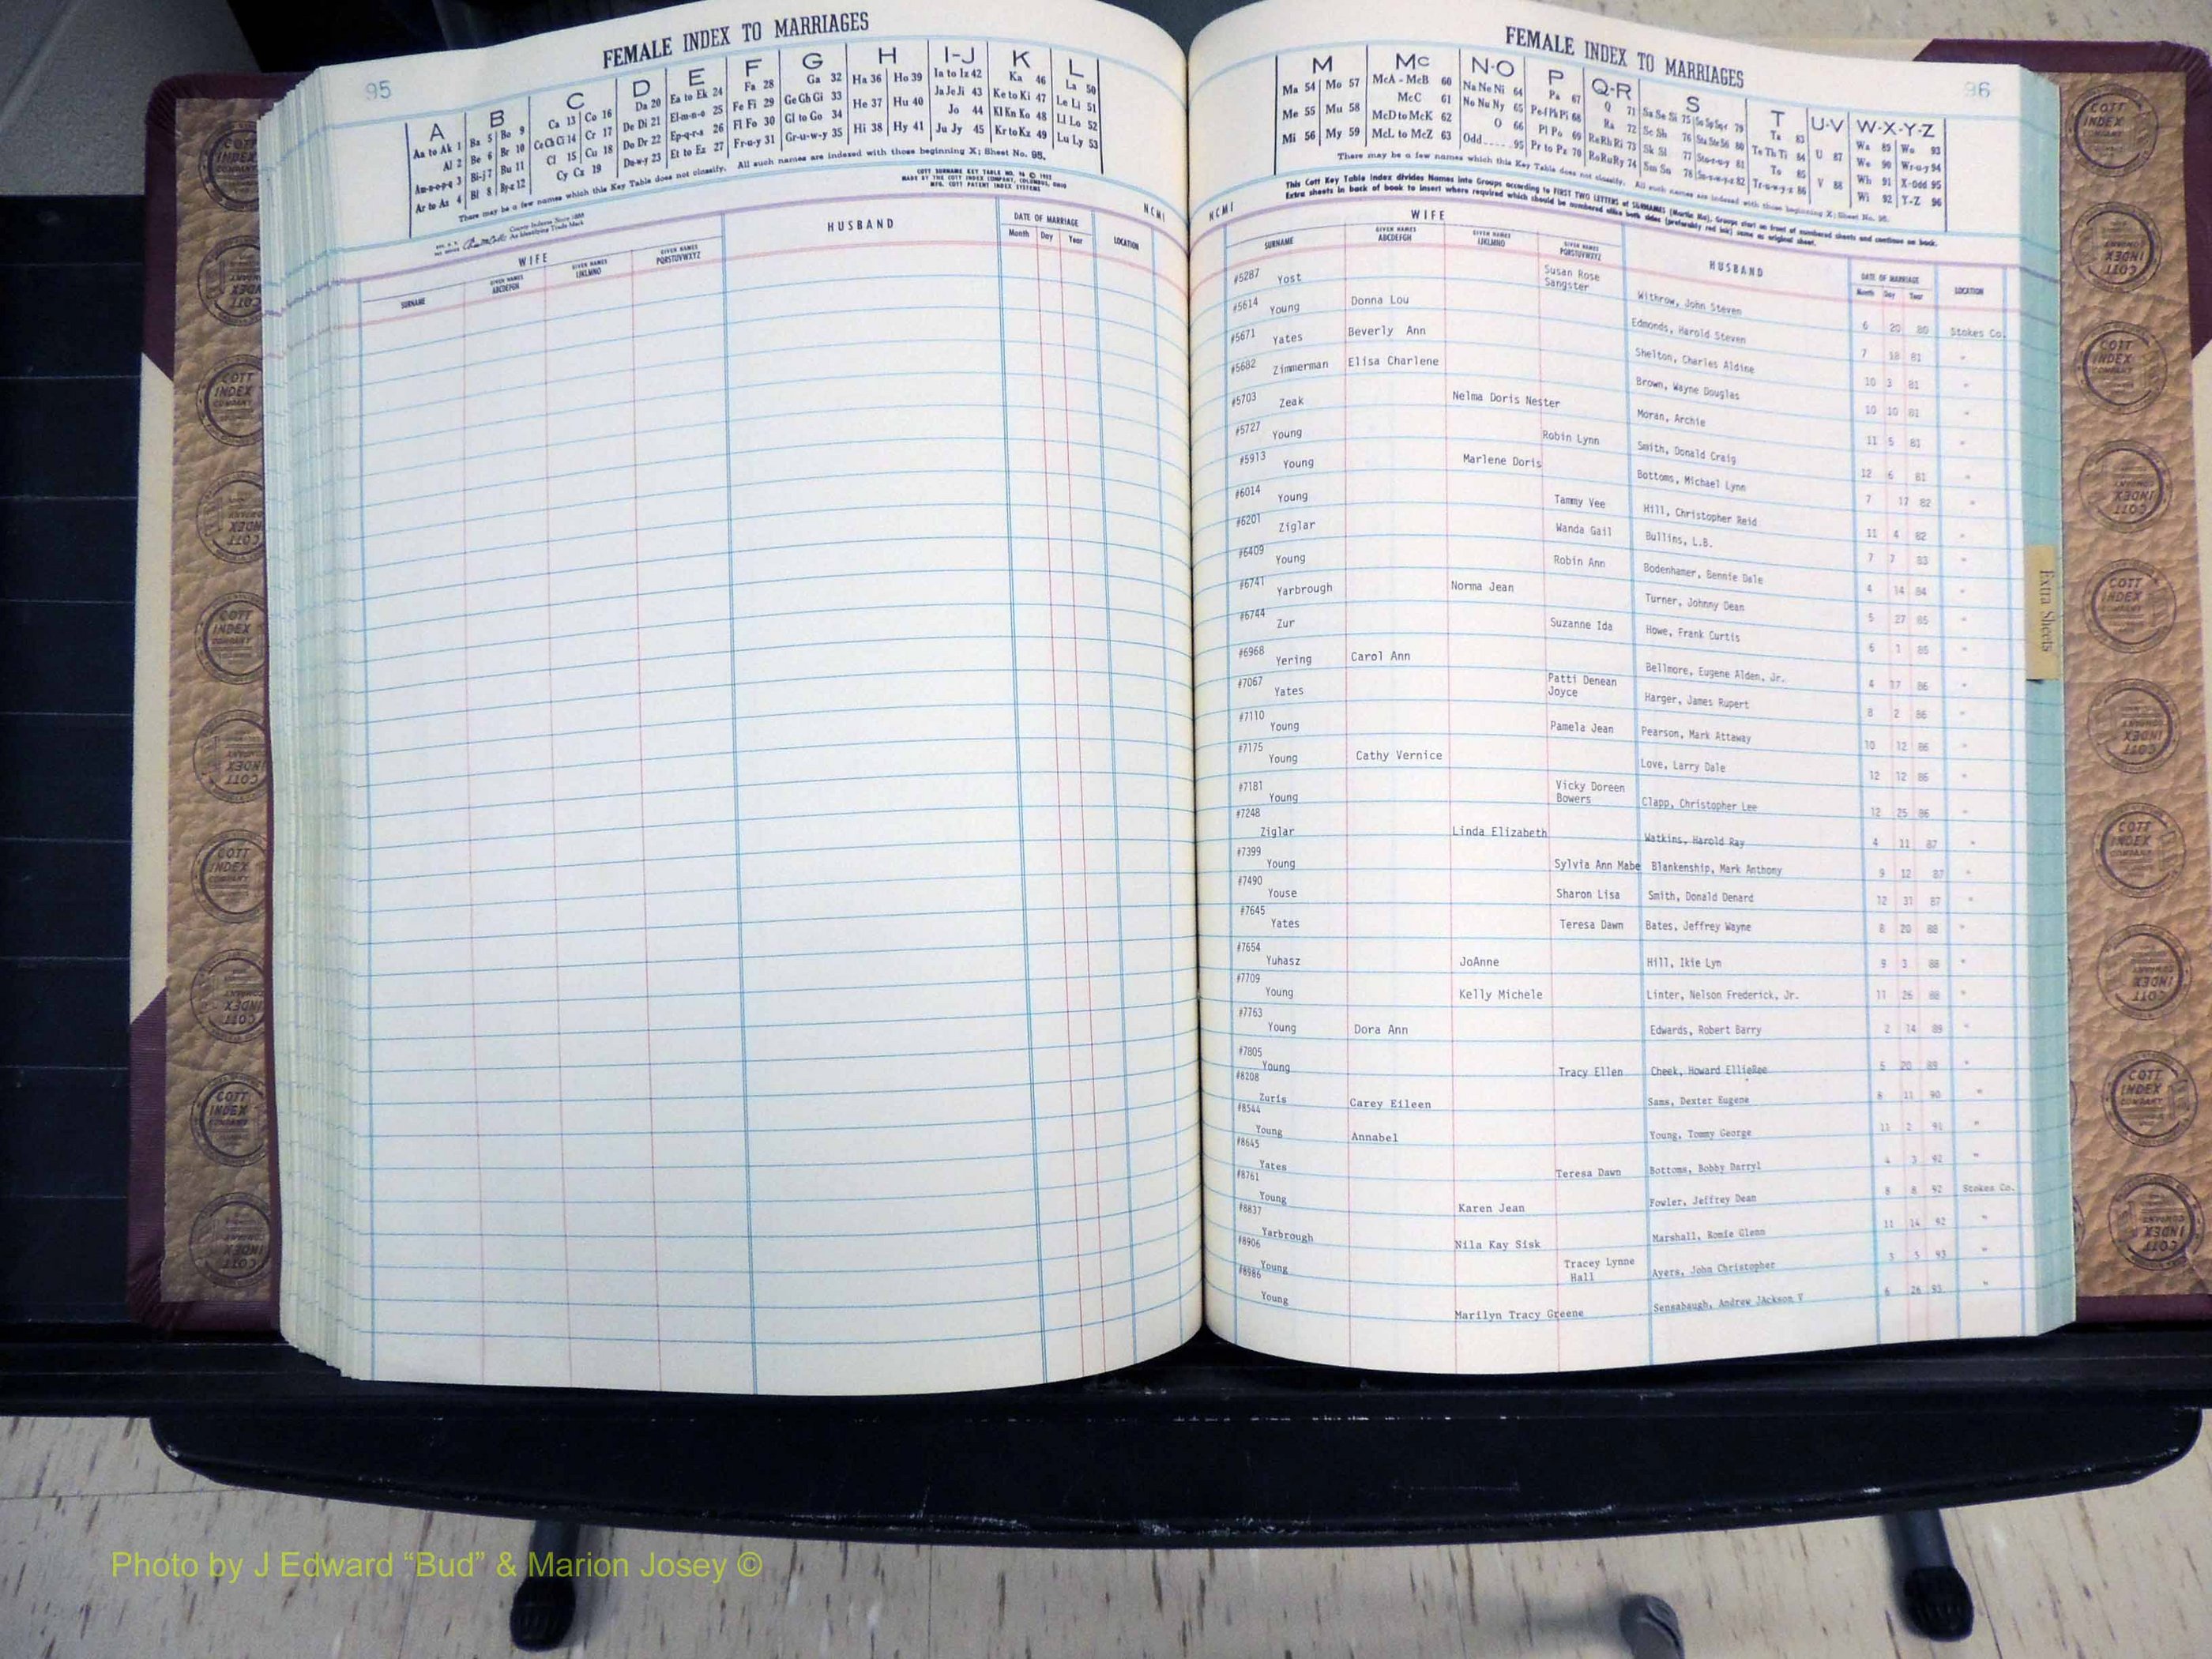 95
FEMALE INDEX TO MARRIAGES
A B C D E F G H I-J K L
Aa to Ak 1 Ba 5 Bo 9 Ca 13 Co 16 Da 20 Ea to Ek 24 Fa 28 Ga 32 Ha 36 Ho 39 Ia to Iz 42 Ka 46 La 50
Al 2 Be 6 Br 10 Ce Ch Ci 14 Cr 17 De Di 21 El-m-n-o 25 Fe Fi 29 Ge Gh Gi 33 He 37 Hu 40 Ja Je Ji 43 Ke to Ki 47 Le Li 51
Am-n-o-p-q 3 Bi-j 7 Bu 11 Cl 15 Cu 18 Do Dr 22 Ep-q-r-s 26 Fl Fo 30 Gl to Go 34 Hi 38 Hy 41 Jo 44 Kl Kn Ko 48 Ll Lo 52
Ar to Az 4 Bl 8 By-z 12 Cy Cz 19 Du-w-y 23 Et to Ez 27 Fr-u-y 31 Gr-u-w-y 35 Ju Jy 45 Kr to Kz 49 Lu Ly 53
There may be a few names which this Key Table does not classify. All such names are indexed with those beginning X; Sheet No. 95.
COTT SURNAME KEY TABLE NO. 96 © 1955
MADE BY THE COTT INDEX COMPANY, COLUMBUS, OHIO
MFG. COTT PATENT INDEX SYSTEMS
County Indexes Since 1888
An Identifying Trade Mark
NCMI
WIFE HUSBAND DATE OF MARRIAGE LOCATION
SURNAME GIVEN NAMES ABCDEFGH GIVEN NAMES IJKLMNO GIVEN NAMES PQRSTUVWXYZ Month Day Year
96
FEMALE INDEX TO MARRIAGES
M Mc N-O P Q-R S T U-V W-X-Y-Z
Ma 54 Mo 57 McA - McB 60 Na Ne Ni 64 Pa 67 Q 71 Sa Se Si 75 Sn Sp Sq-r 79 Ta 83 U 87 Wa 89 Wo 93
Me 55 Mu 58 McC 61 No Nu Ny 65 Pe Pf Ph Pi 68 Ra 72 Sc Sh 76 Sta Ste 80 Te Th Ti 84 V 88 We 90 Wr-u-y 94
Mi 56 My 59 McD to McK 62 O 66 Pl Po 69 Ra Rh Ri 73 Sk Sl 77 Sto-r-u-y 81 To 85 Wh 91 X-Odd 95
McL to McZ 63 Odd 95 Pr to Pz 70 Ro Ru Ry 74 Sm 78 Su-v-w-y-z 82 Tr-u-w-y-z 86 Wi 92 Y-Z 96
There may be a few names which this Key Table does not classify. All such names are indexed with those beginning X; Sheet No. 95.
This Cott Key Table Index divides Names into Groups according to FIRST TWO LETTERS of SURNAMES (Martin Ma), Groups start on front of numbered sheets and continue on back.
Extra sheets in back of book to insert where required which should be numbered alike both sides (preferably red ink) same as original sheet.
NCMI
WIFE HUSBAND DATE OF MARRIAGE LOCATION
SURNAME GIVEN NAMES ABCDEFGH GIVEN NAMES IJKLMNO GIVEN NAMES PQRSTUVWXYZ Month Day Year
#5287 Yost Susan Rose Sangster Withrow, John Steven 6 20 80 Stokes Co.
#5614 Young Donna Lou Edmonds, Harold Steven 7 18 81 "
#5671 Yates Beverly Ann Shelton, Charles Aldine 10 3 81 "
#5682 Zimmerman Elisa Charlene Brown, Wayne Douglas 10 10 81 "
#5703 Zeak Nelma Doris Nester Moran, Archie 11 5 81 "
#5727 Young Robin Lynn Smith, Donald Craig 12 6 81 "
#5913 Young Marlene Doris Bottoms, Michael Lynn 7 17 82 "
#6014 Young Tammy Vee Hill, Christopher Reid 11 4 82 "
#6201 Ziglar Wanda Gail Bullins, L.B. 7 7 83 "
#6409 Young Robin Ann Bodenhamer, Bennie Dale 4 14 84 "
#6741 Yarbrough Norma Jean Turner, Johnny Dean 5 27 85 "
#6744 Zur Suzanne Ida Howe, Frank Curtis 6 1 85 "
#6968 Yering Carol Ann Bellmore, Eugene Alden, Jr. 4 17 86 "
#7067 Yates Patti Denean Joyce Harger, James Rupert 8 2 86 "
#7110 Young Pamela Jean Pearson, Mark Attaway 10 12 86 "
#7175 Young Cathy Vernice Love, Larry Dale 12 12 86 "
#7181 Young Vicky Doreen Bowers Clapp, Christopher Lee 12 25 86 "
#7248 Ziglar Linda Elizabeth Watkins, Harold Ray 4 11 87 "
#7399 Young Sylvia Ann Mabe Blankenship, Mark Anthony 9 12 87 "
#7490 Youse Sharon Lisa Smith, Donald Denard 12 31 87 "
#7645 Yates Teresa Dawn Bates, Jeffrey Wayne 8 20 88 "
#7654 Yuhasz JoAnne Hill, Ikie Lyn 9 3 88 "
#7709 Young Kelly Michele Linter, Nelson Frederick, Jr. 11 26 88 "
#7763 Young Dora Ann Edwards, Robert Barry 2 14 89 "
#7805 Young Tracy Ellen Cheek, Howard 5 20 89
#8208 Zuris Carey Eileen Sams, Dexter Eugene 8 11 90 "
#8544 Young Annabel Young, Tommy George 11 2 91 "
#8645 Yates Teresa Dawn Bottoms, Bobby Darryl 4 3 92 "
#8761 Young Karen Jean Fowler, Jeffrey Dean 8 8 92 Stokes Co.
#8837 Yarbrough Nila Kay Sisk Marshall, Romie Glenn 11 14 92 "
#8906 Young Tracey Lynne Hall Ayers, John Christopher 3 5 93 "
#8986 Young Marilyn Tracy Greene Sensabaugh, Andrew JAckson V 6 26 93 "
Extra Sheets
COTT INDEX COMPANY
Photo by J Edward “Bud” & Marion Josey ©